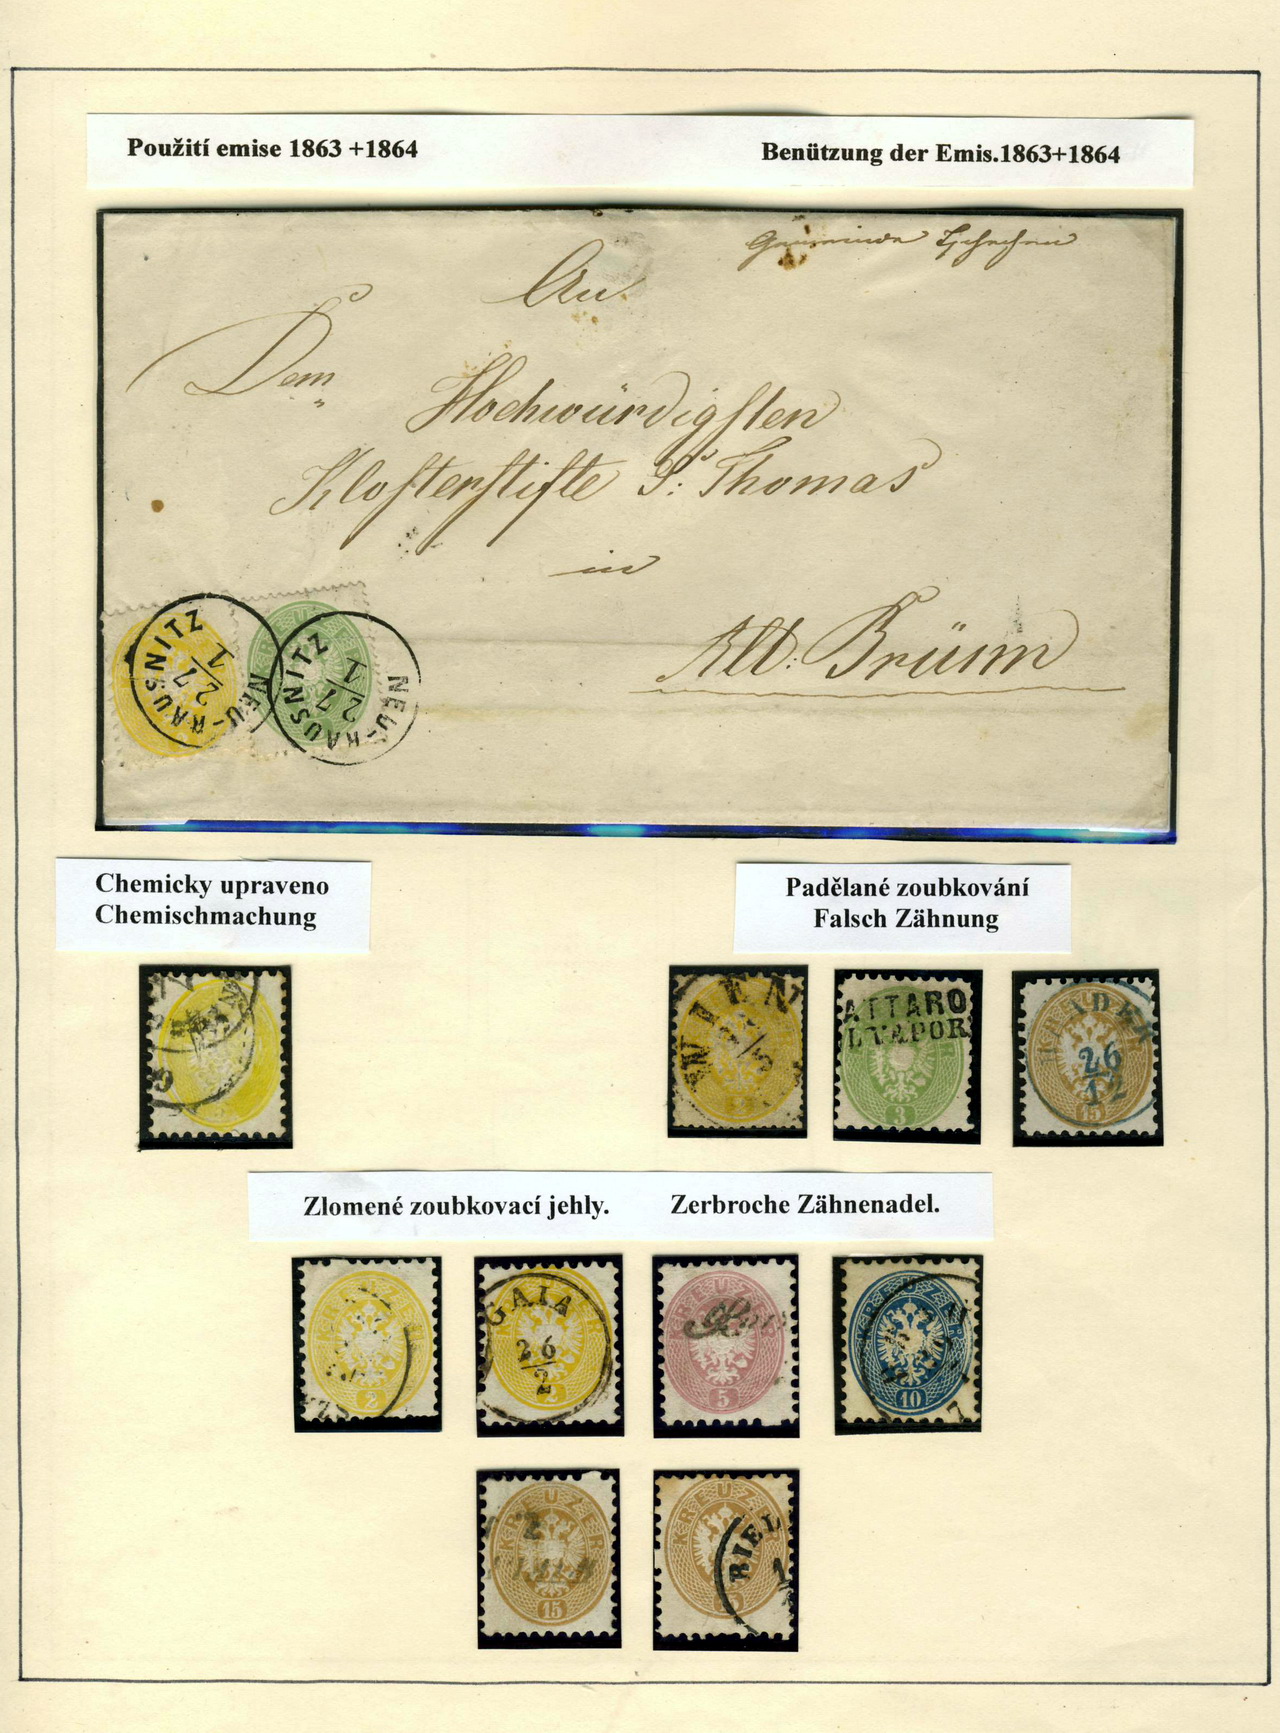 Použití emise 1863 +1864
Benützung der Emis.1863+1864
Gemeinde
An
Dem
Hochwürdigsten
Klosterstifte St: Thomas
in
Alt: Brünn
NEU-RAUSNITZ
27/1
NEU-RAUSNITZ
27/1
KREUZER
Chemicky upraveno
Chemischmachung
Padělané zoubkování
Falsch Zähnung
WIEN
5
2
ATTARO
LVAPOR
3
26
12
15
Zlomené zoubkovací jehly.
Zerbroche Zähnenadel.
KREUZER
2
GAIA
26/2
2
KREUZER
5
10
7
KREUZER
15
KREUZER
BIEL
1